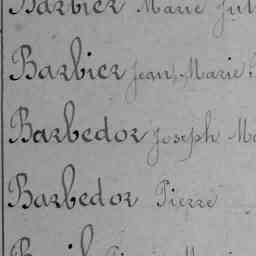 Barbier Marie Jul
Barbier Jean, Marie
Barbedor Joseph Ma
Barbedor Pierre